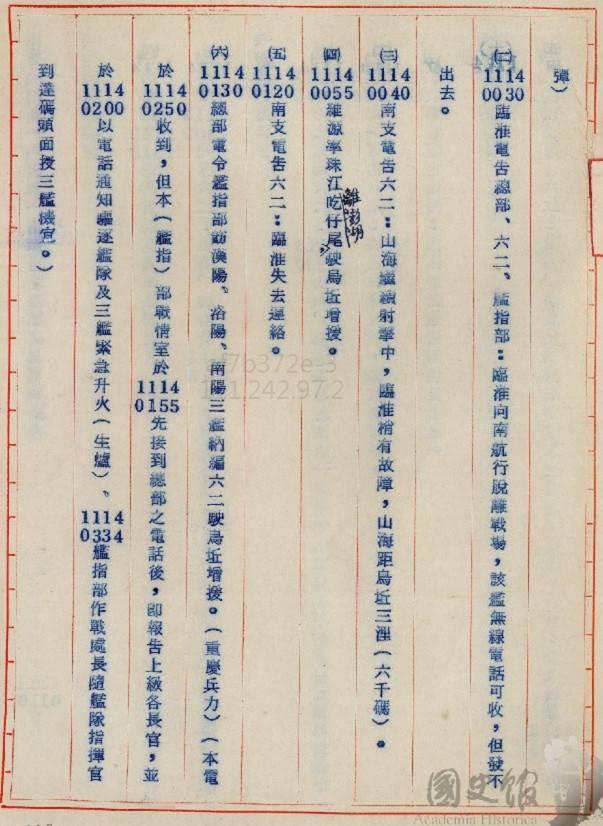 彈）
㈡1114 0030臨淮電告總部、六二、艦指部：臨淮向南航行脫離戰場，該艦無線電話可收，但發不
出去。
㈢1114 0040南支電告六二：山海繼續射擊中，臨淮稍有故障，山海距烏坵三浬（六千碼）。
㈣1114 0055維源率珠江吃仔尾駛烏坵增援。
離澎湖
㈤1114 0120南支電告六二：臨淮失去連絡。
㈥1114 0130總部電令艦指部飭漢陽、洛陽、南陽三艦納編六二駛烏坵增援。（重慶兵力）（本電
於1114 0250收到，但本（艦指）部戰情室於1114 0155先接到總部之電話後，即報告上級各長官，並
於1114 0200以電話通知驅逐艦隊及三艦緊急升火（生爐）、1114 0334艦指部作戰處長隨艦隊指揮官
到達碼頭面授三艦機宜。）
af7b372e-3
101.242.97.2
國史館
Academia Historica